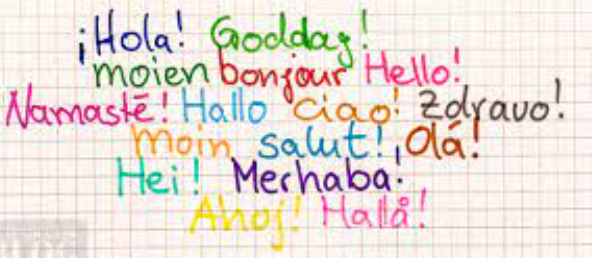 ¡Hola! Goddag!
moien bonjour Hello!
Namastē! Hallo Ciao! Zdravo!
moin salut! Olá!
Hei! Merhaba!
Ahoj! Hallå!